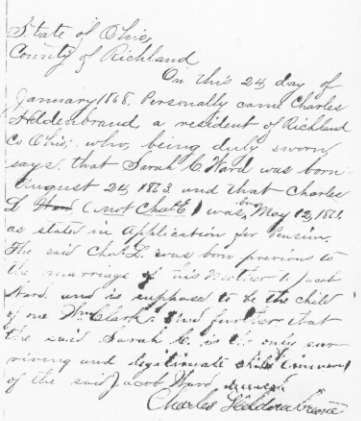 State of Ohio,
County of Richland
On this 24 day of
January 1868. Personally came Charles
Heldenbrand a resident of Richland
Co Ohio, who, being duly sworn,
says. that Sarah C Ward was born
August 24, 1863 and that Charles
L Ward (not Chas E) was, born May 12, 1861.
as stated in Application for Pension.
The said Chas L. was born previous to
the marriage of his Mother to Jacob
Ward. and is supposed to be the child
of one Wm Clark. And further that
the said Sarah C. is the only sur
viving and legitimate child (
of the said Jacob Ward
Charles Heldenbrand